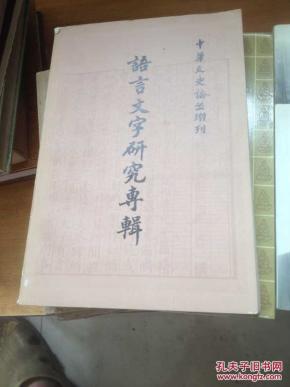 中華文史論叢增刊
語言文字研究專輯
孔夫子旧书网